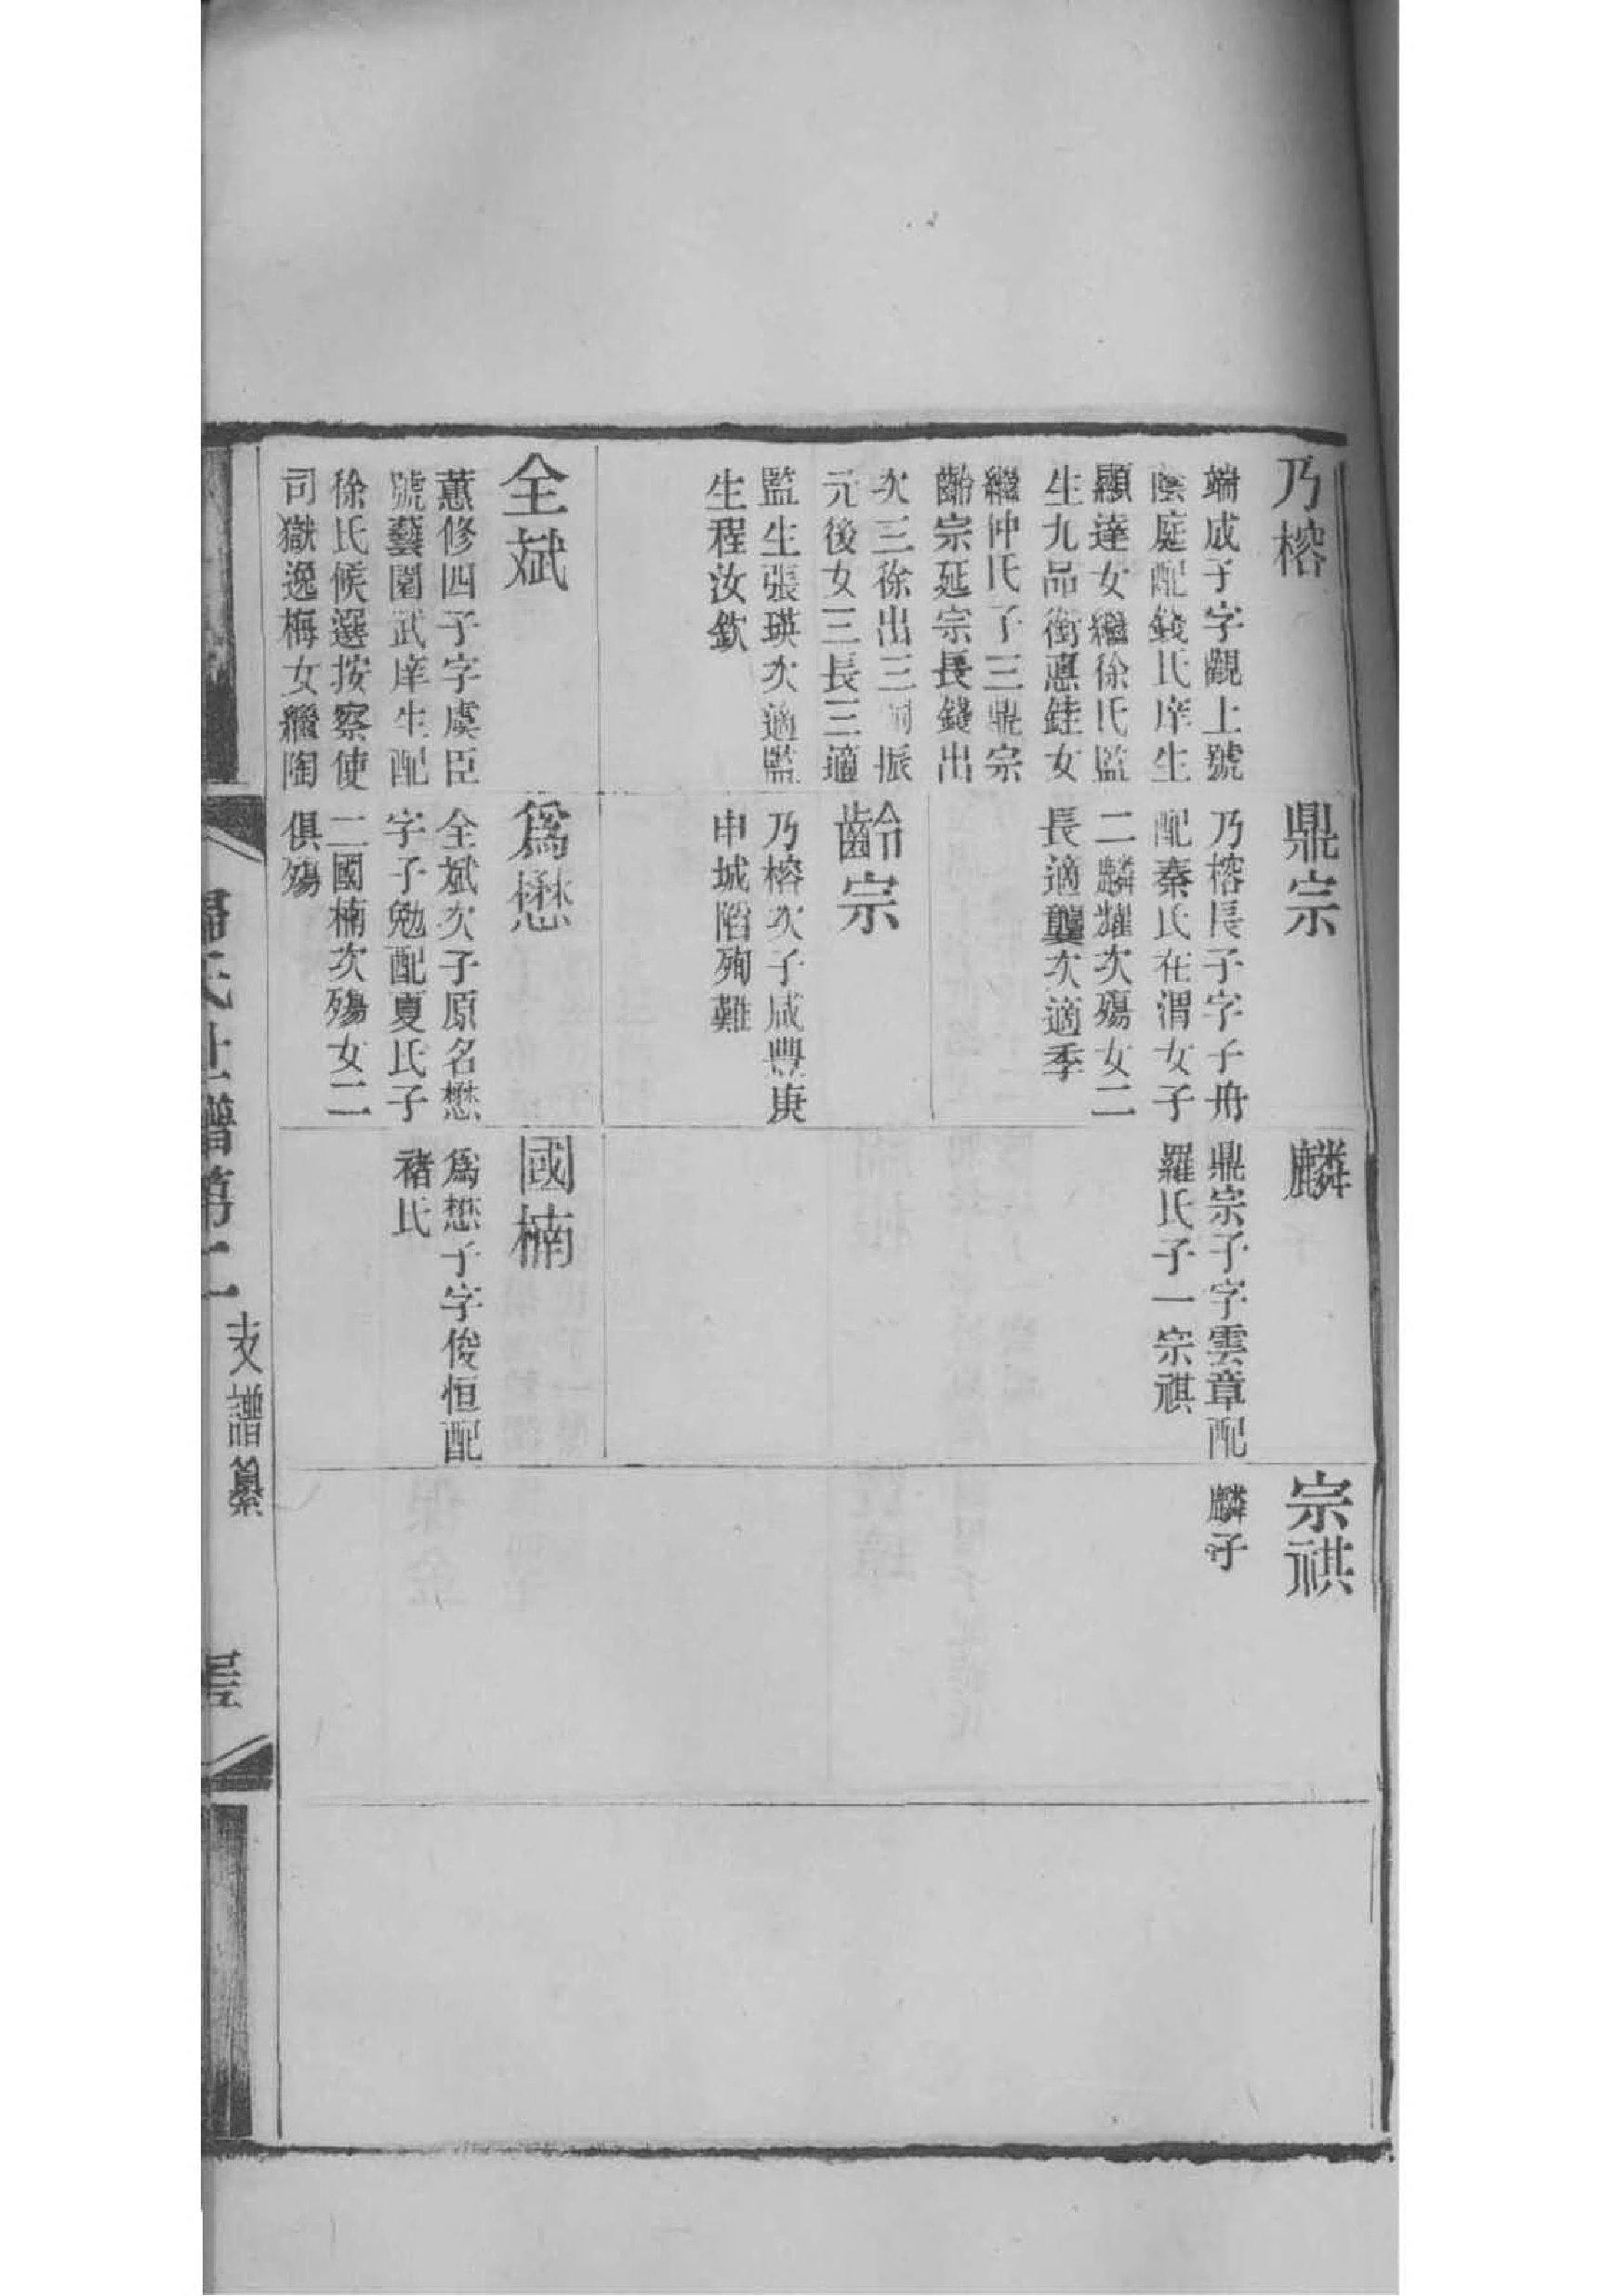 乃榕
端成子字觀上號
蔭庭配錢氏庠生
顯達女繼徐氏監
生九品銜蕙銈女
繼仲氏子三鼎宗
齡宗延宗長錢出
次三徐出三嗣振
元後女三長三適
監生張瑛次適監
生程汝欽
鼎宗
乃榕長子字子舟
配秦氏在渭女子
二麟耀次殤女二
長適龔次適季
齡宗
乃榕次子咸豐庚
申城陷殉難
麟
鼎宗子字雲章配
羅氏子一宗祺
宗祺
麟子
全斌
蕙修四子字虞臣
號藝園武庠生配
徐氏候選按察使
司獄逸梅女繼陶
為懋
全斌次子原名懋
字子勉配夏氏子
二國楠次殤女二
俱殤
國楠
為懋子字俊恒配
褚氏
歸氏世譜第二
支譜纂